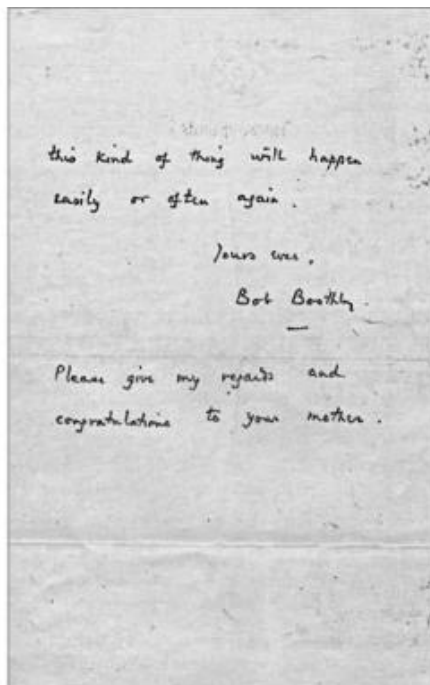 this kind of thing will happen
easily or often again.
Yours ever,
Bob Boothby.
Please give my regards and
congratulations to your mother.